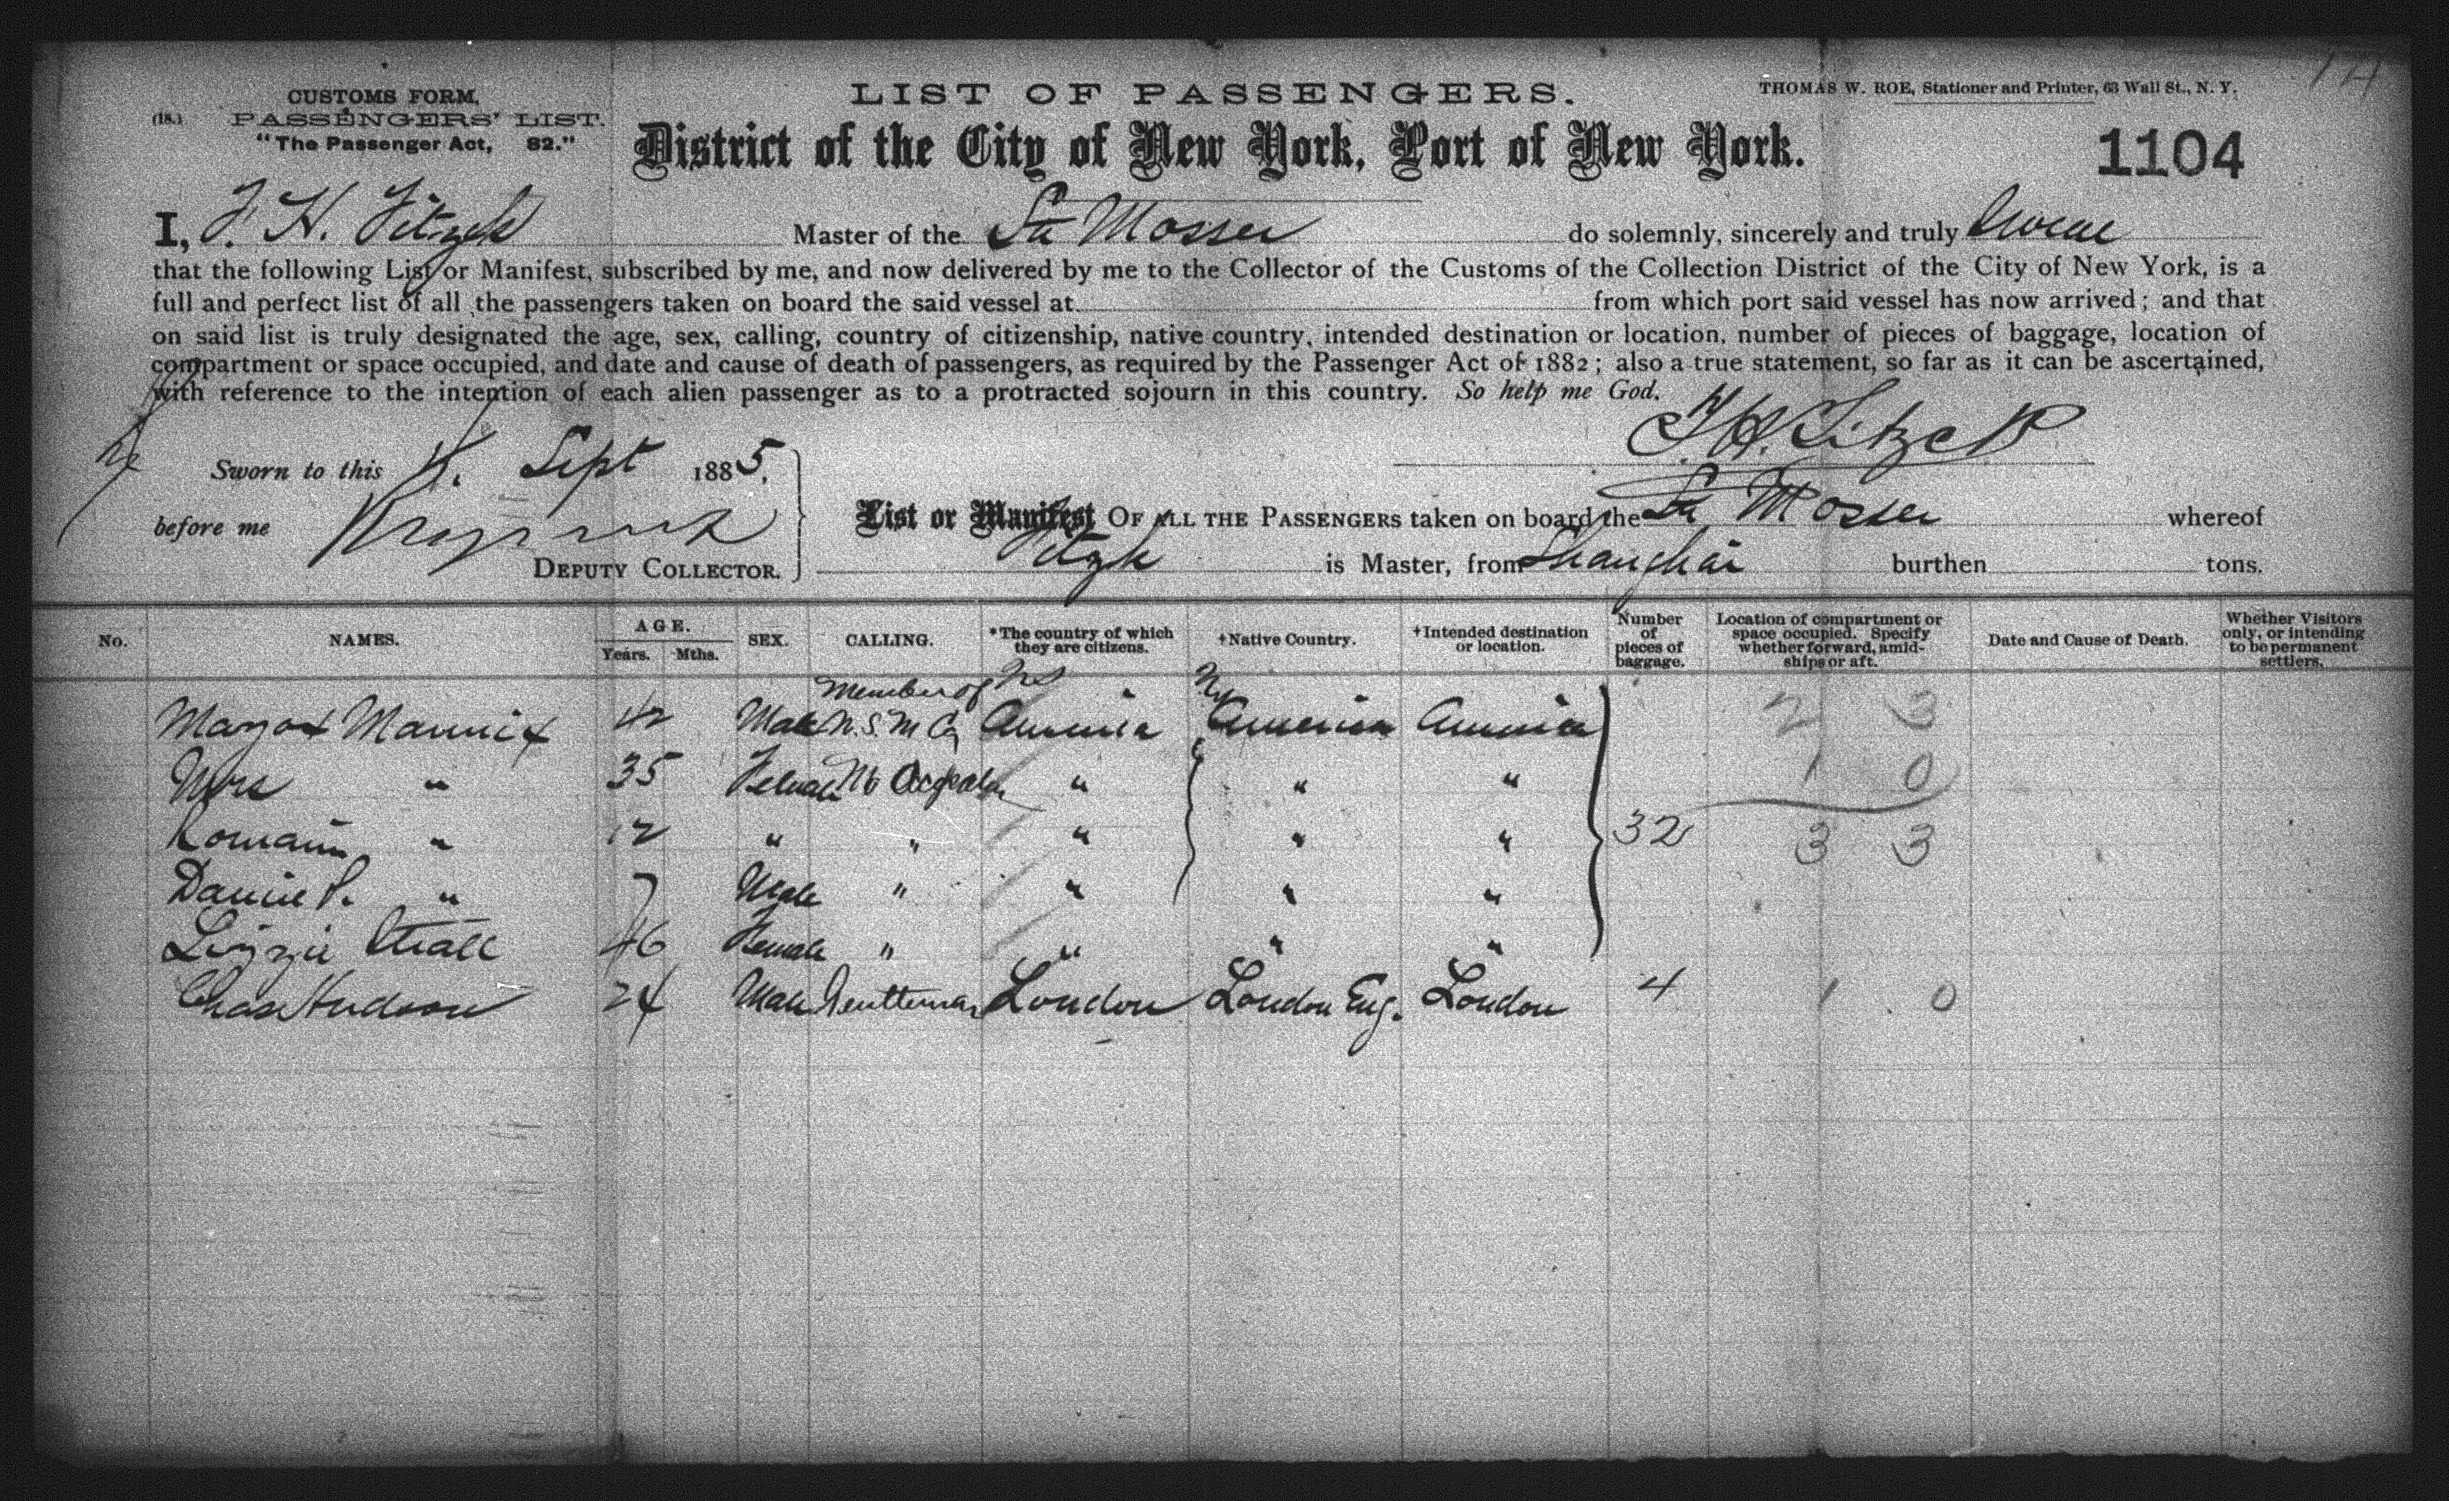 CUSTOMS FORM.
(18.) PASSENGERS' LIST.
"The Passenger Act, 82."
LIST OF PASSENGERS.
THOMAS W. ROE, Stationer and Printer, 63 Wall St., N. Y.
District of the City of New York, Port of New York.
1104
I, F. H. Master of the Str Mosser do solemnly, sincerely and truly Swear
that the following List or Manifest, subscribed by me, and now delivered by me to the Collector of the Customs of the Collection District of the City of New York, is a
full and perfect list of all the passengers taken on board the said vessel at from which port said vessel has now arrived; and that
on said list is truly designated the age, sex, calling, country of citizenship, native country, intended destination or location, number of pieces of baggage, location of
compartment or space occupied, and date and cause of death of passengers, as required by the Passenger Act of 1882; also a true statement, so far as it can be ascertained,
with reference to the intention of each alien passenger as to a protracted sojourn in this country. So help me God.
Sworn to this Sept 1885.
before me
DEPUTY COLLECTOR.
List or Manifest OF ALL THE PASSENGERS taken on board the Str Mosser whereof
is Master, from Shanghai burthen tons.
No. NAMES. AGE. Years. Mths. SEX. CALLING. *The country of which they are citizens. †Native Country. †Intended destination or location. Number of pieces of baggage. Location of compartment or space occupied. Specify whether forward, amidships or aft. Date and Cause of Death. Whether Visitors only, or intending to be permanent settlers.
Member of
Mannix 42 Male America America America 2 3
Mrs " 35 Female " " " 1 0
" 12 " " " " " 32 3 3
" 7 Male " " " "
Lizzie 46 Female " " " "
Chas Hudson 24 Male Gentleman London London Eng. London 4 1 0